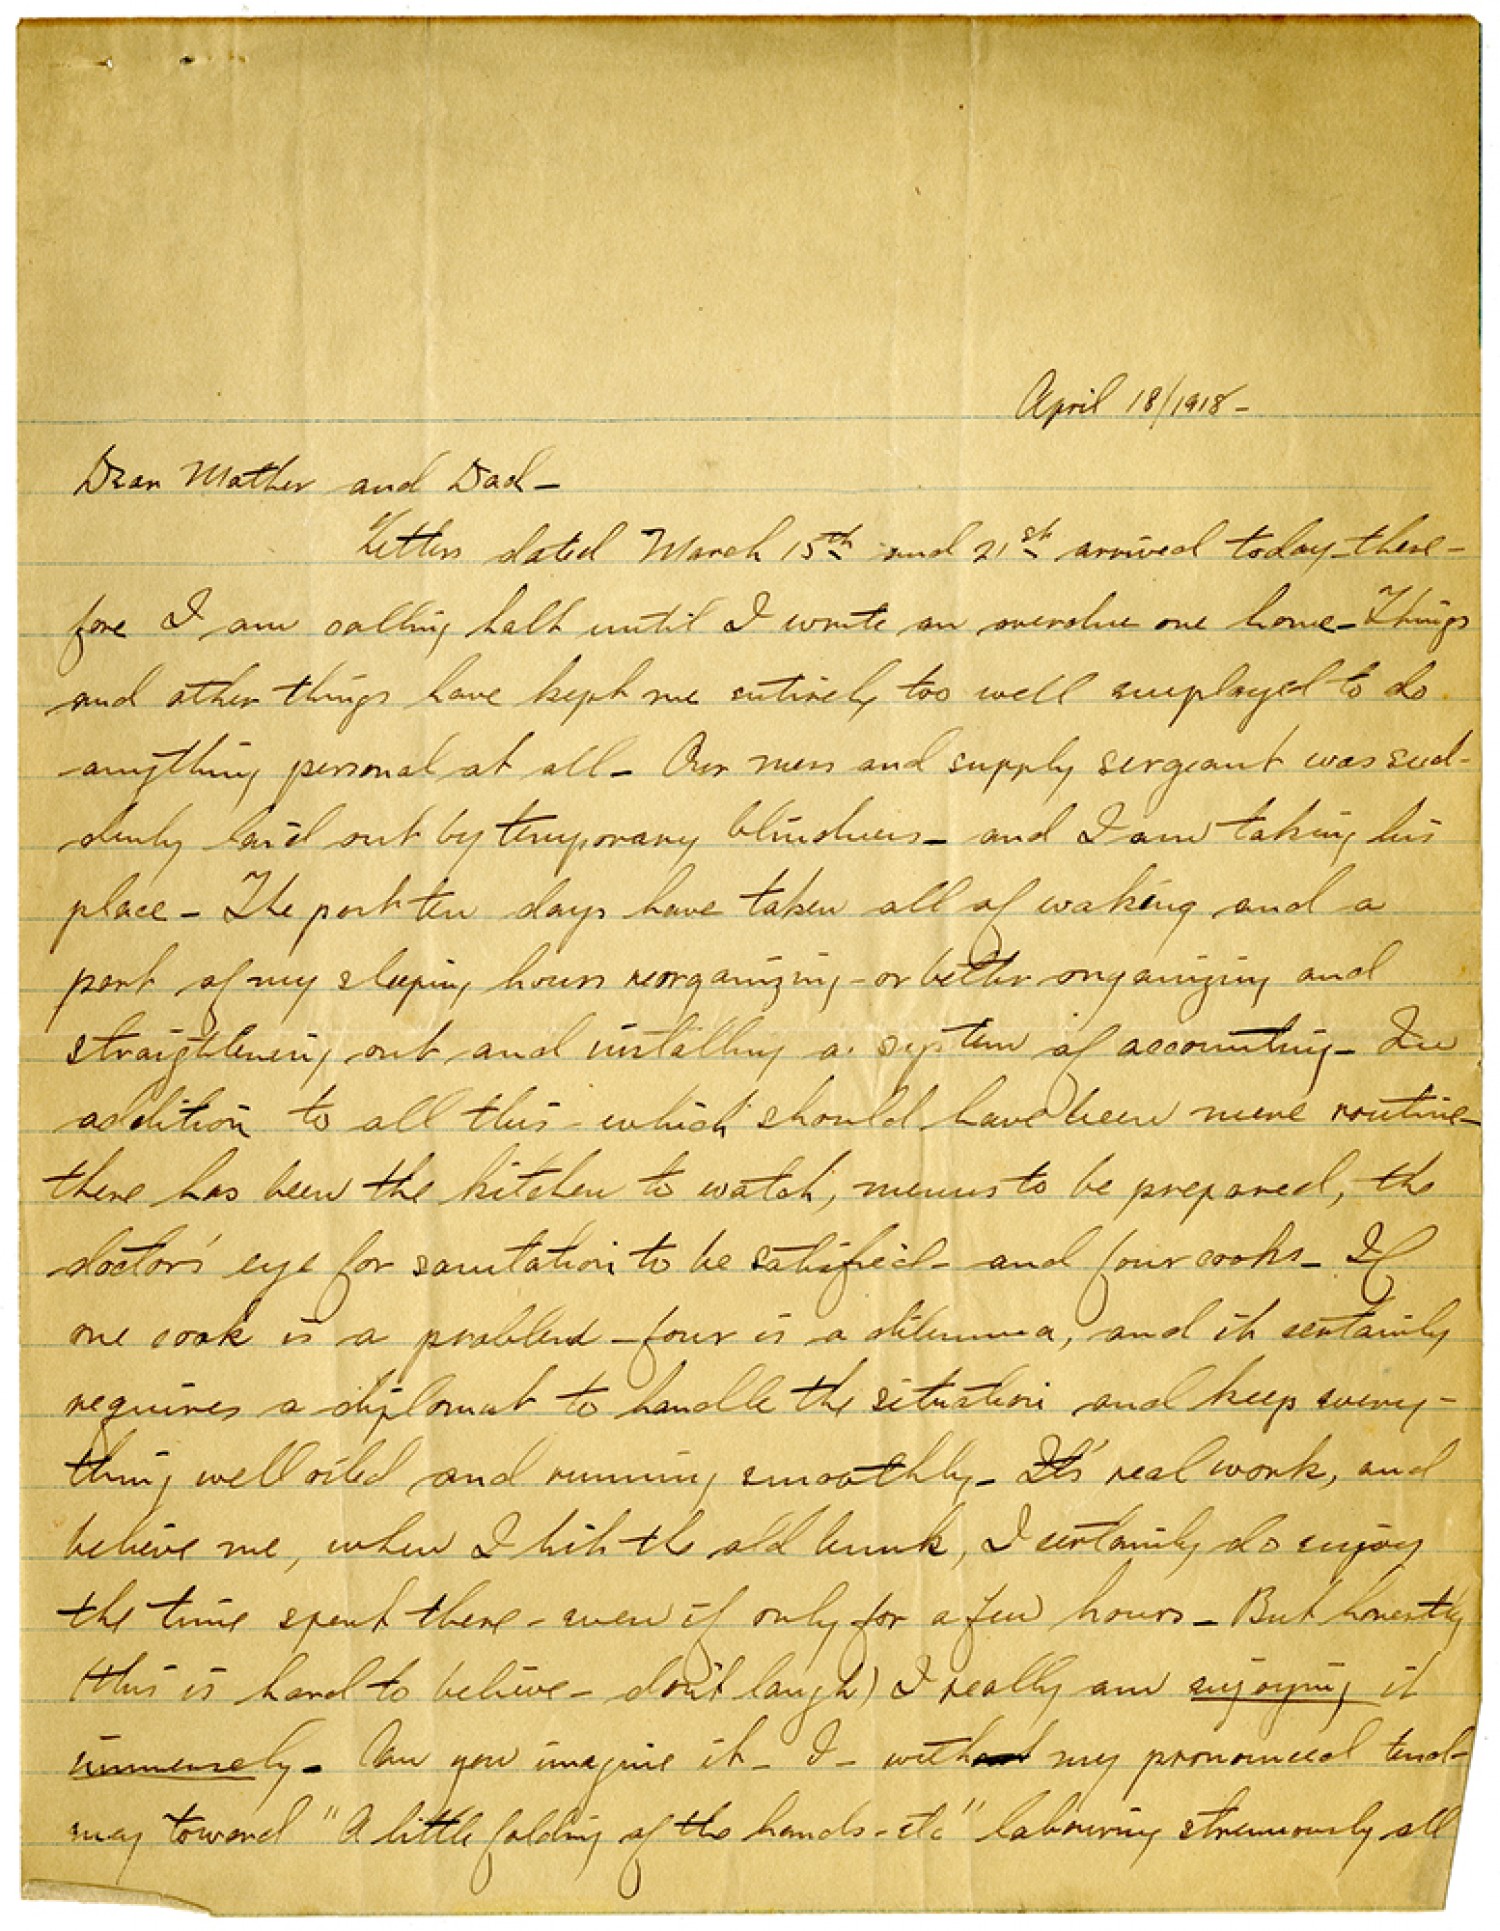 April 18/1918-
Dear Mother and Dad-
Letters dated March 15th and 21st arrived today-there-
fore I am calling halt until I write an overdue one home-Things
and other things have kept me entirely too well employed to do
anything personal at all- Our mess and supply sergeant was sud-
denly laid out by temporary blindness- and I am taking his
place- The past ten days have taken all of waking and a
part of my sleeping hours reorganizing-or better organizing and
straightening out and installing a system of accounting- In
addition to all this-which should have been mere routine-
there has been the kitchen to watch, menus to be prepared, the
doctors' eye for sanitation to be satisfied- and four cooks- If
one cook is a problem-four is a dilemma, and it certainly
requires a diplomat to handle the situation and keep every-
thing well oiled and running smoothly- It's real work, and
believe me, when I hit the old bunk, I certainly do enjoy
the time spent there-even if only for a few hours- But honestly
(this is hard to believe- don't laugh) I really am enjoying it
immensely- Can you imagine it- I- with my pronounced tend-
ency toward "A little folding of the hands-etc" labouring strenuously all